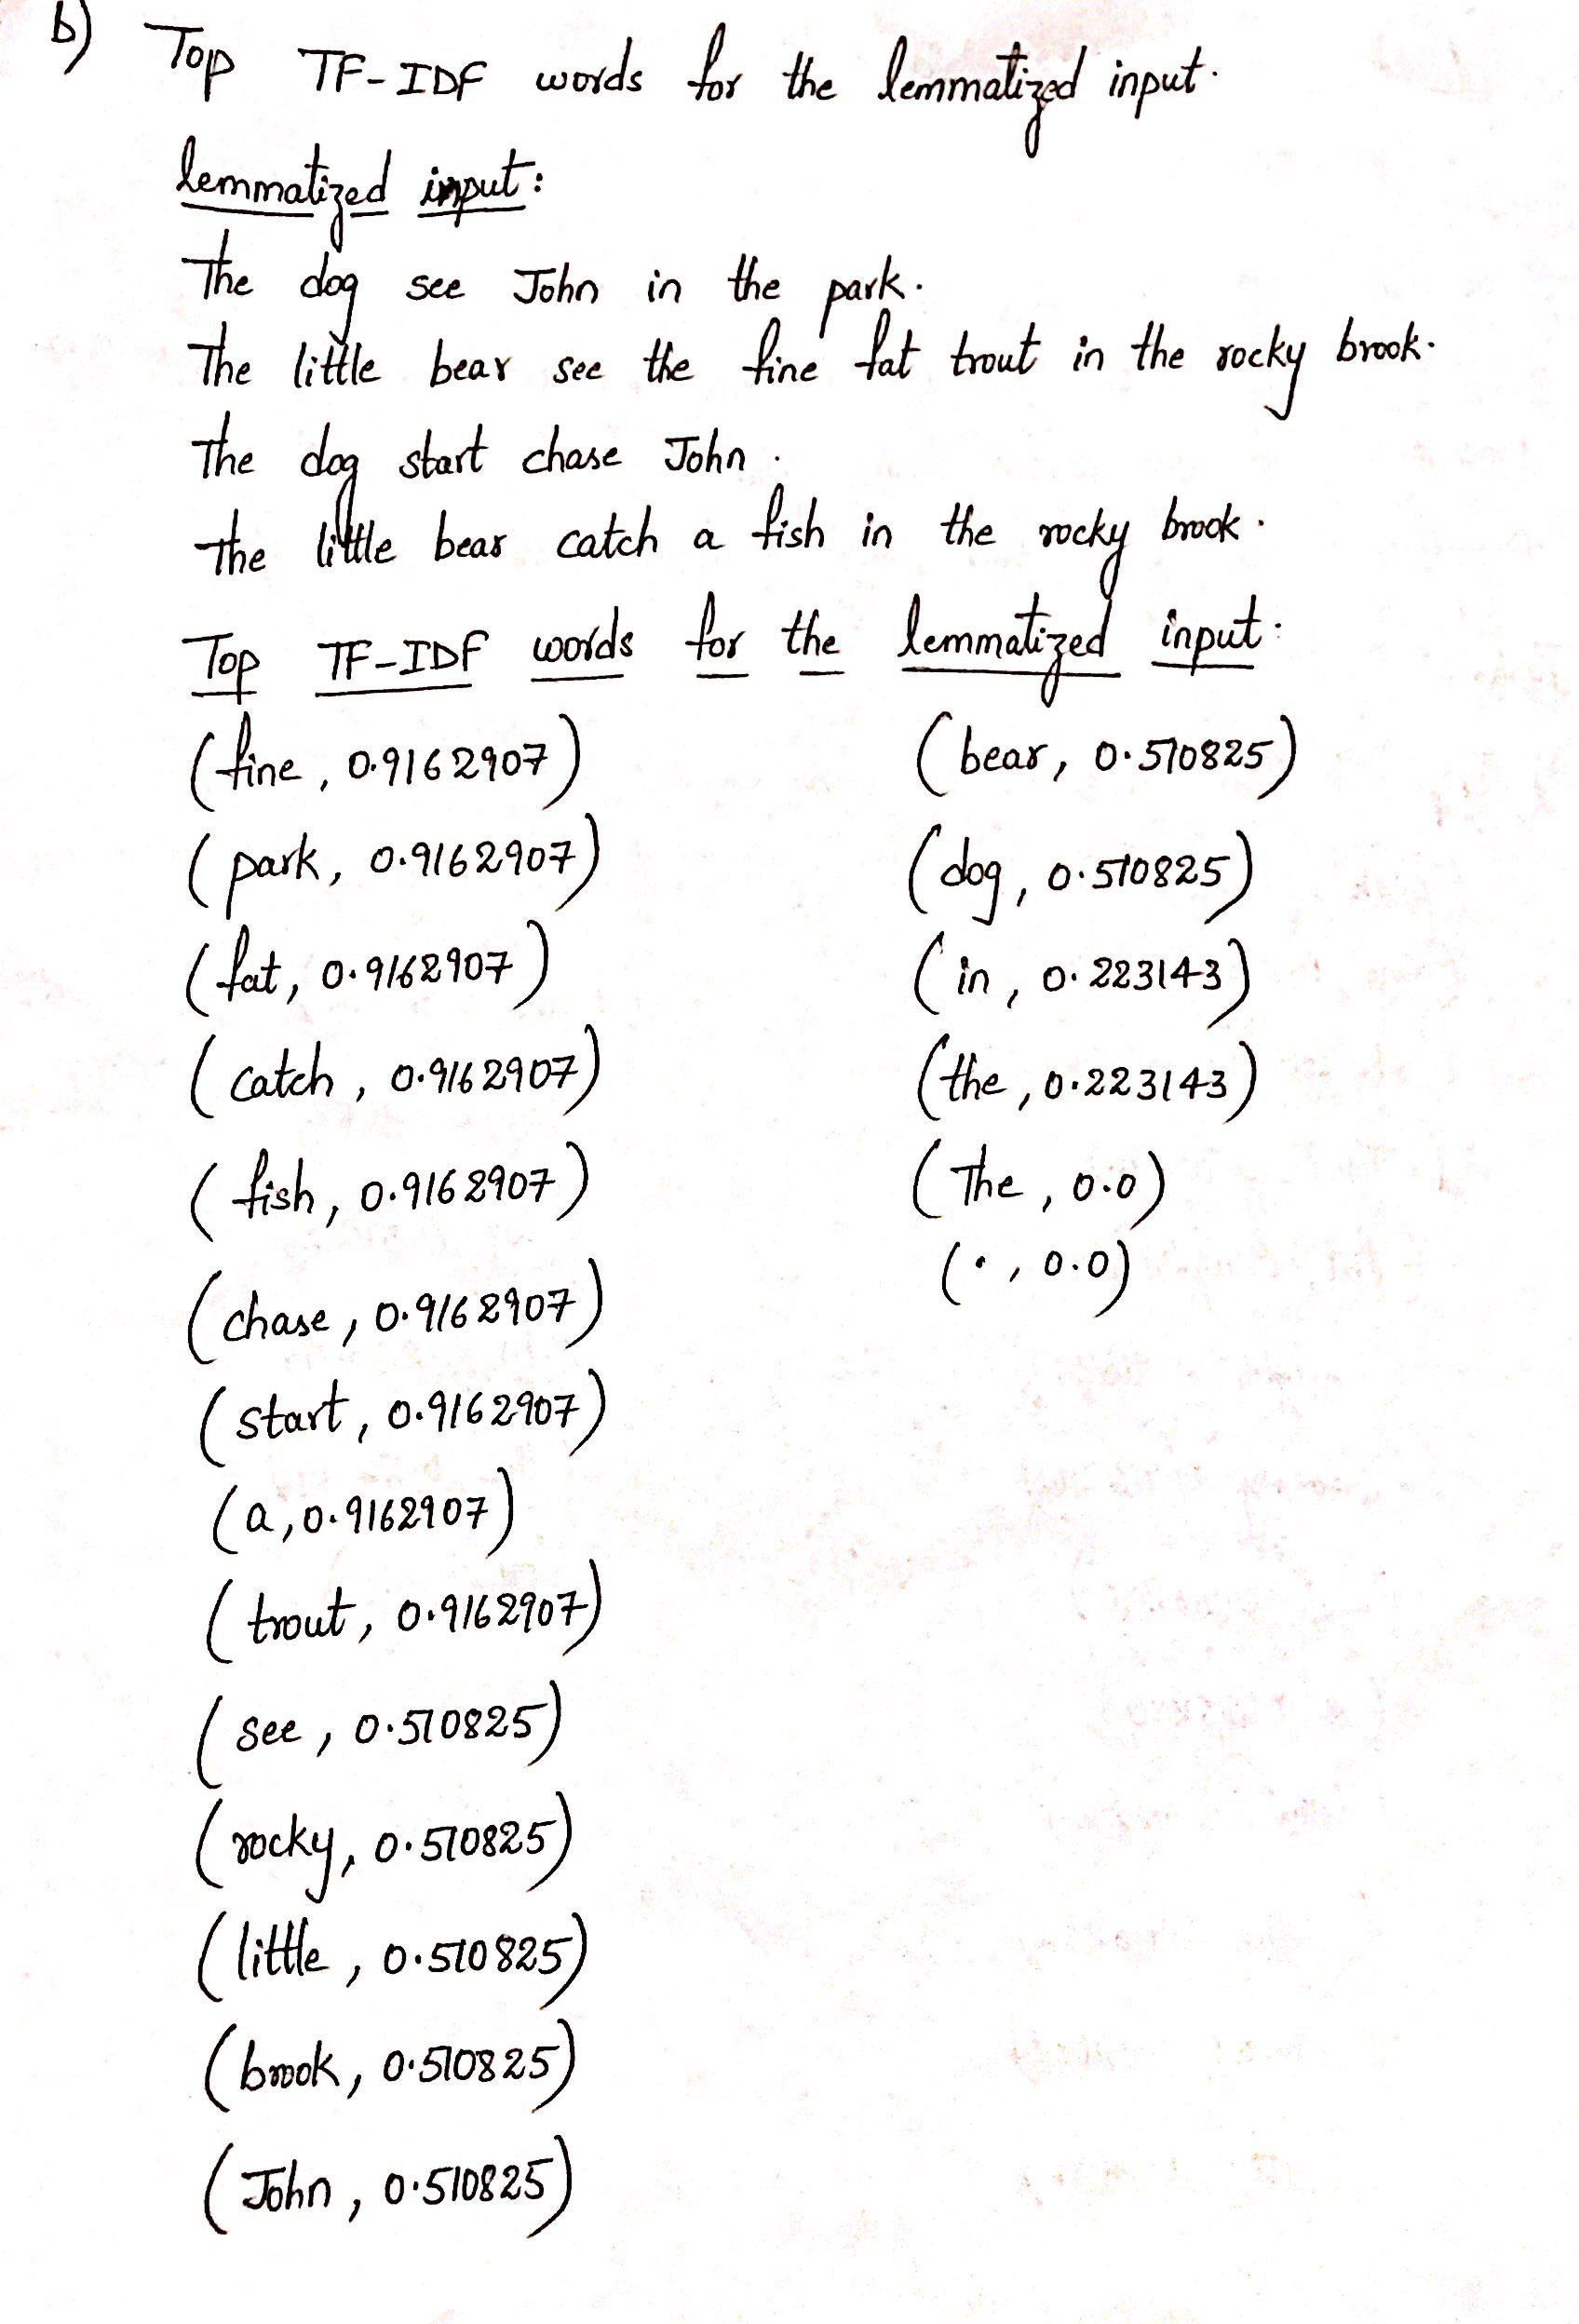 b) Top TF-IDF words for the lemmatized input.
lemmatized input:
The dog see John in the park.
The little bear see the fine fat trout in the rocky brook.
The dog start chase John.
The little bear catch a fish in the rocky brook.
Top TF-IDF words for the lemmatized input:
(fine, 0.9162907)
(park, 0.9162907)
(fat, 0.9162907)
(catch, 0.9162907)
(fish, 0.9162907)
(chase, 0.9162907)
(start, 0.9162907)
(a, 0.9162907)
(trout, 0.9162907)
(see, 0.510825)
(rocky, 0.510825)
(little, 0.510825)
(brook, 0.510825)
(John, 0.510825)
(bear, 0.510825)
(dog, 0.510825)
(in, 0.223143)
(the, 0.223143)
(The, 0.0)
(., 0.0)